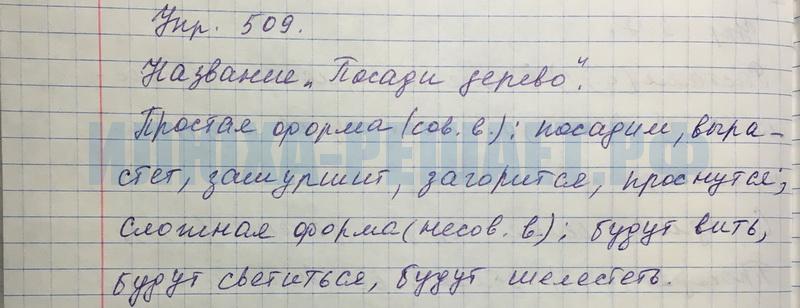 Упр. 509.
Название „Посади дерево".
Простая форма (сов. в.): посадим, выра-
ИЛЮХА-РЕШАЕТ.РФ
стет, зашуршит, загорится, проснутся;
Сложная форма (несов. в.): будут вить,
будут светиться, будут шелестеть.